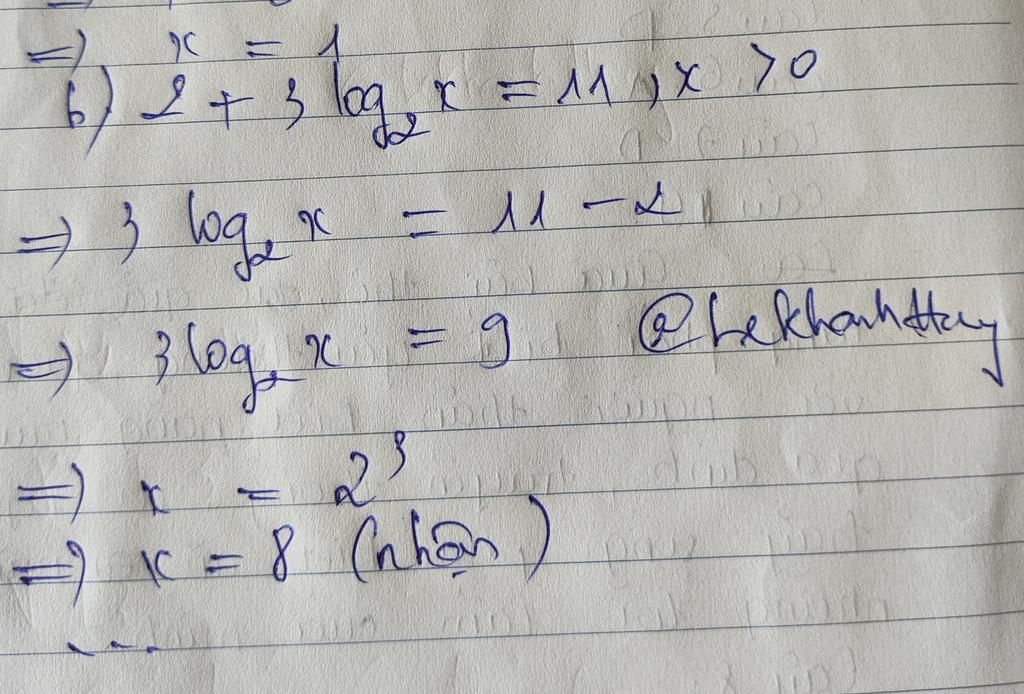 ⇒ x = 1
b) 2 + 3 log₂ x = 11 , x > 0
⇒ 3 log₂ x = 11 - 2
⇒ 3 log₂ x = 9 @LekhanhHuy
⇒ x = 2³
⇒ x = 8 (nhận)
...